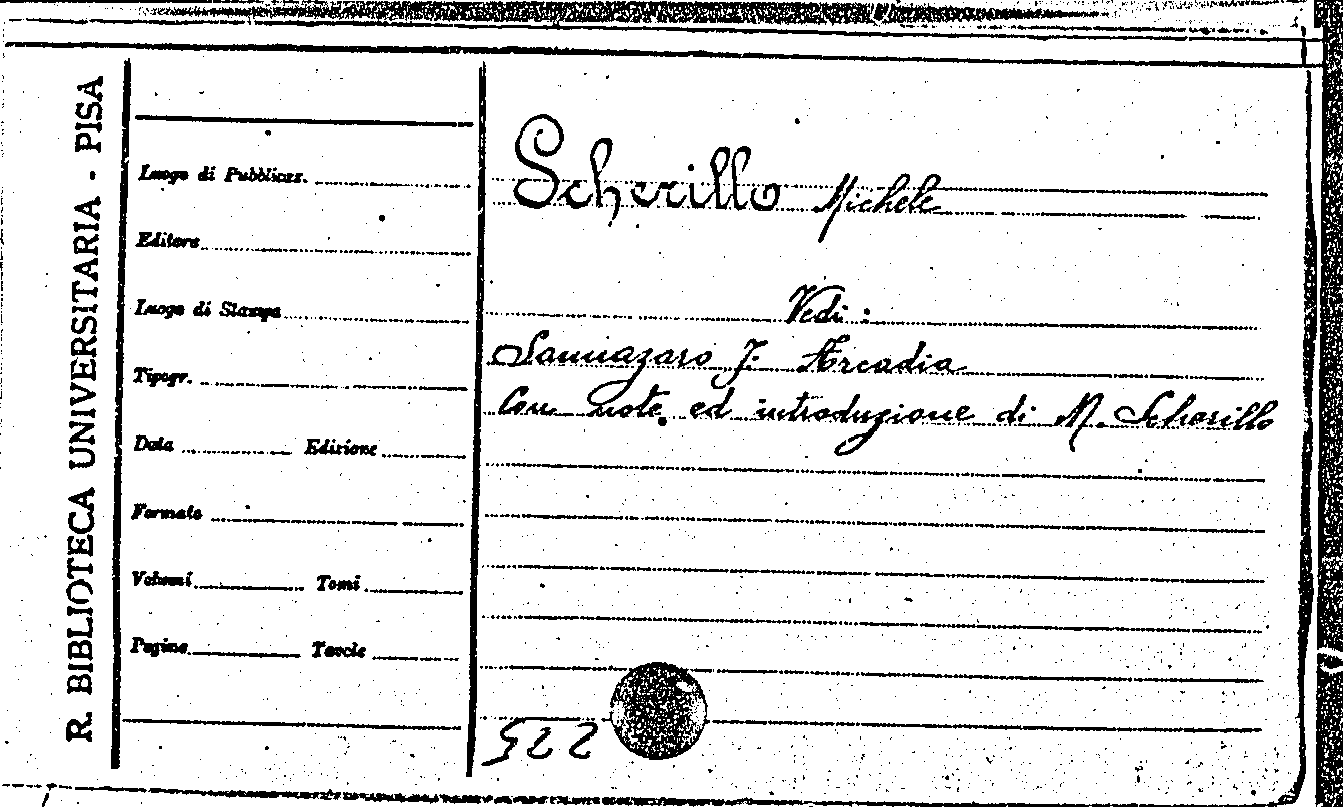 R. BIBLIOTECA UNIVERSITARIA - PISA
Luogo di Pubblicaz.
Editore
Luogo di Stampa
Tipogr.
Data Edizione
Formato
Volumi Tomi
Pagine Tavole
Scherillo Michele
Vedi :
Sannazaro J. Arcadia
Con note ed introduzione di M. Scherillo
522